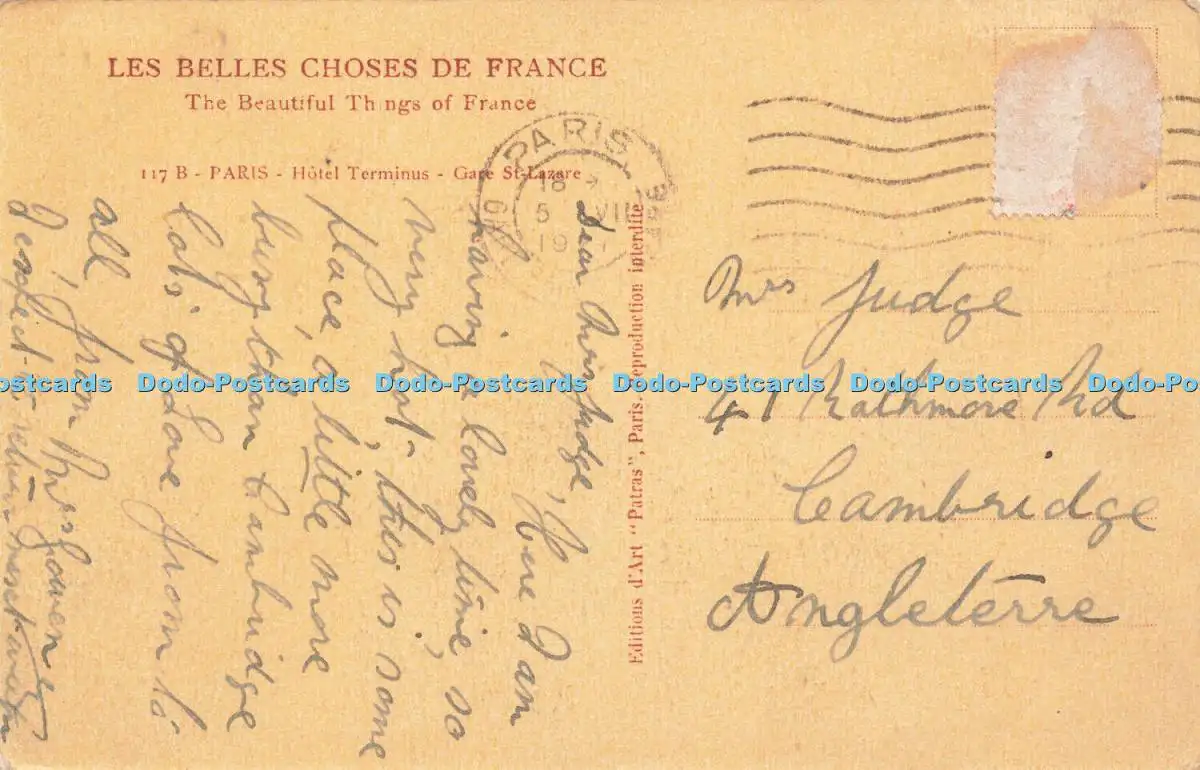 LES BELLES CHOSES DE FRANCE
The Beautiful Th ngs of France
117 B - PARIS - Hôtel Terminus - Gare St-Lazare
PARIS
18
5 VII
19
Dear Mrs Judge, Here I am
having a lovely time, so
very hot, this is some
place, a little more
busy than Cambridge
Lots of Love from to
all, from Mrs
I expect to return next
Editions d'Art "Patras", Paris. Reproduction interdite
Mrs Judge
41 Rathmore Rd
Cambridge
Angleterre
Dodo-Postcards Dodo-Postcards Dodo-Postcards Dodo-Postcards Dodo-Postcards